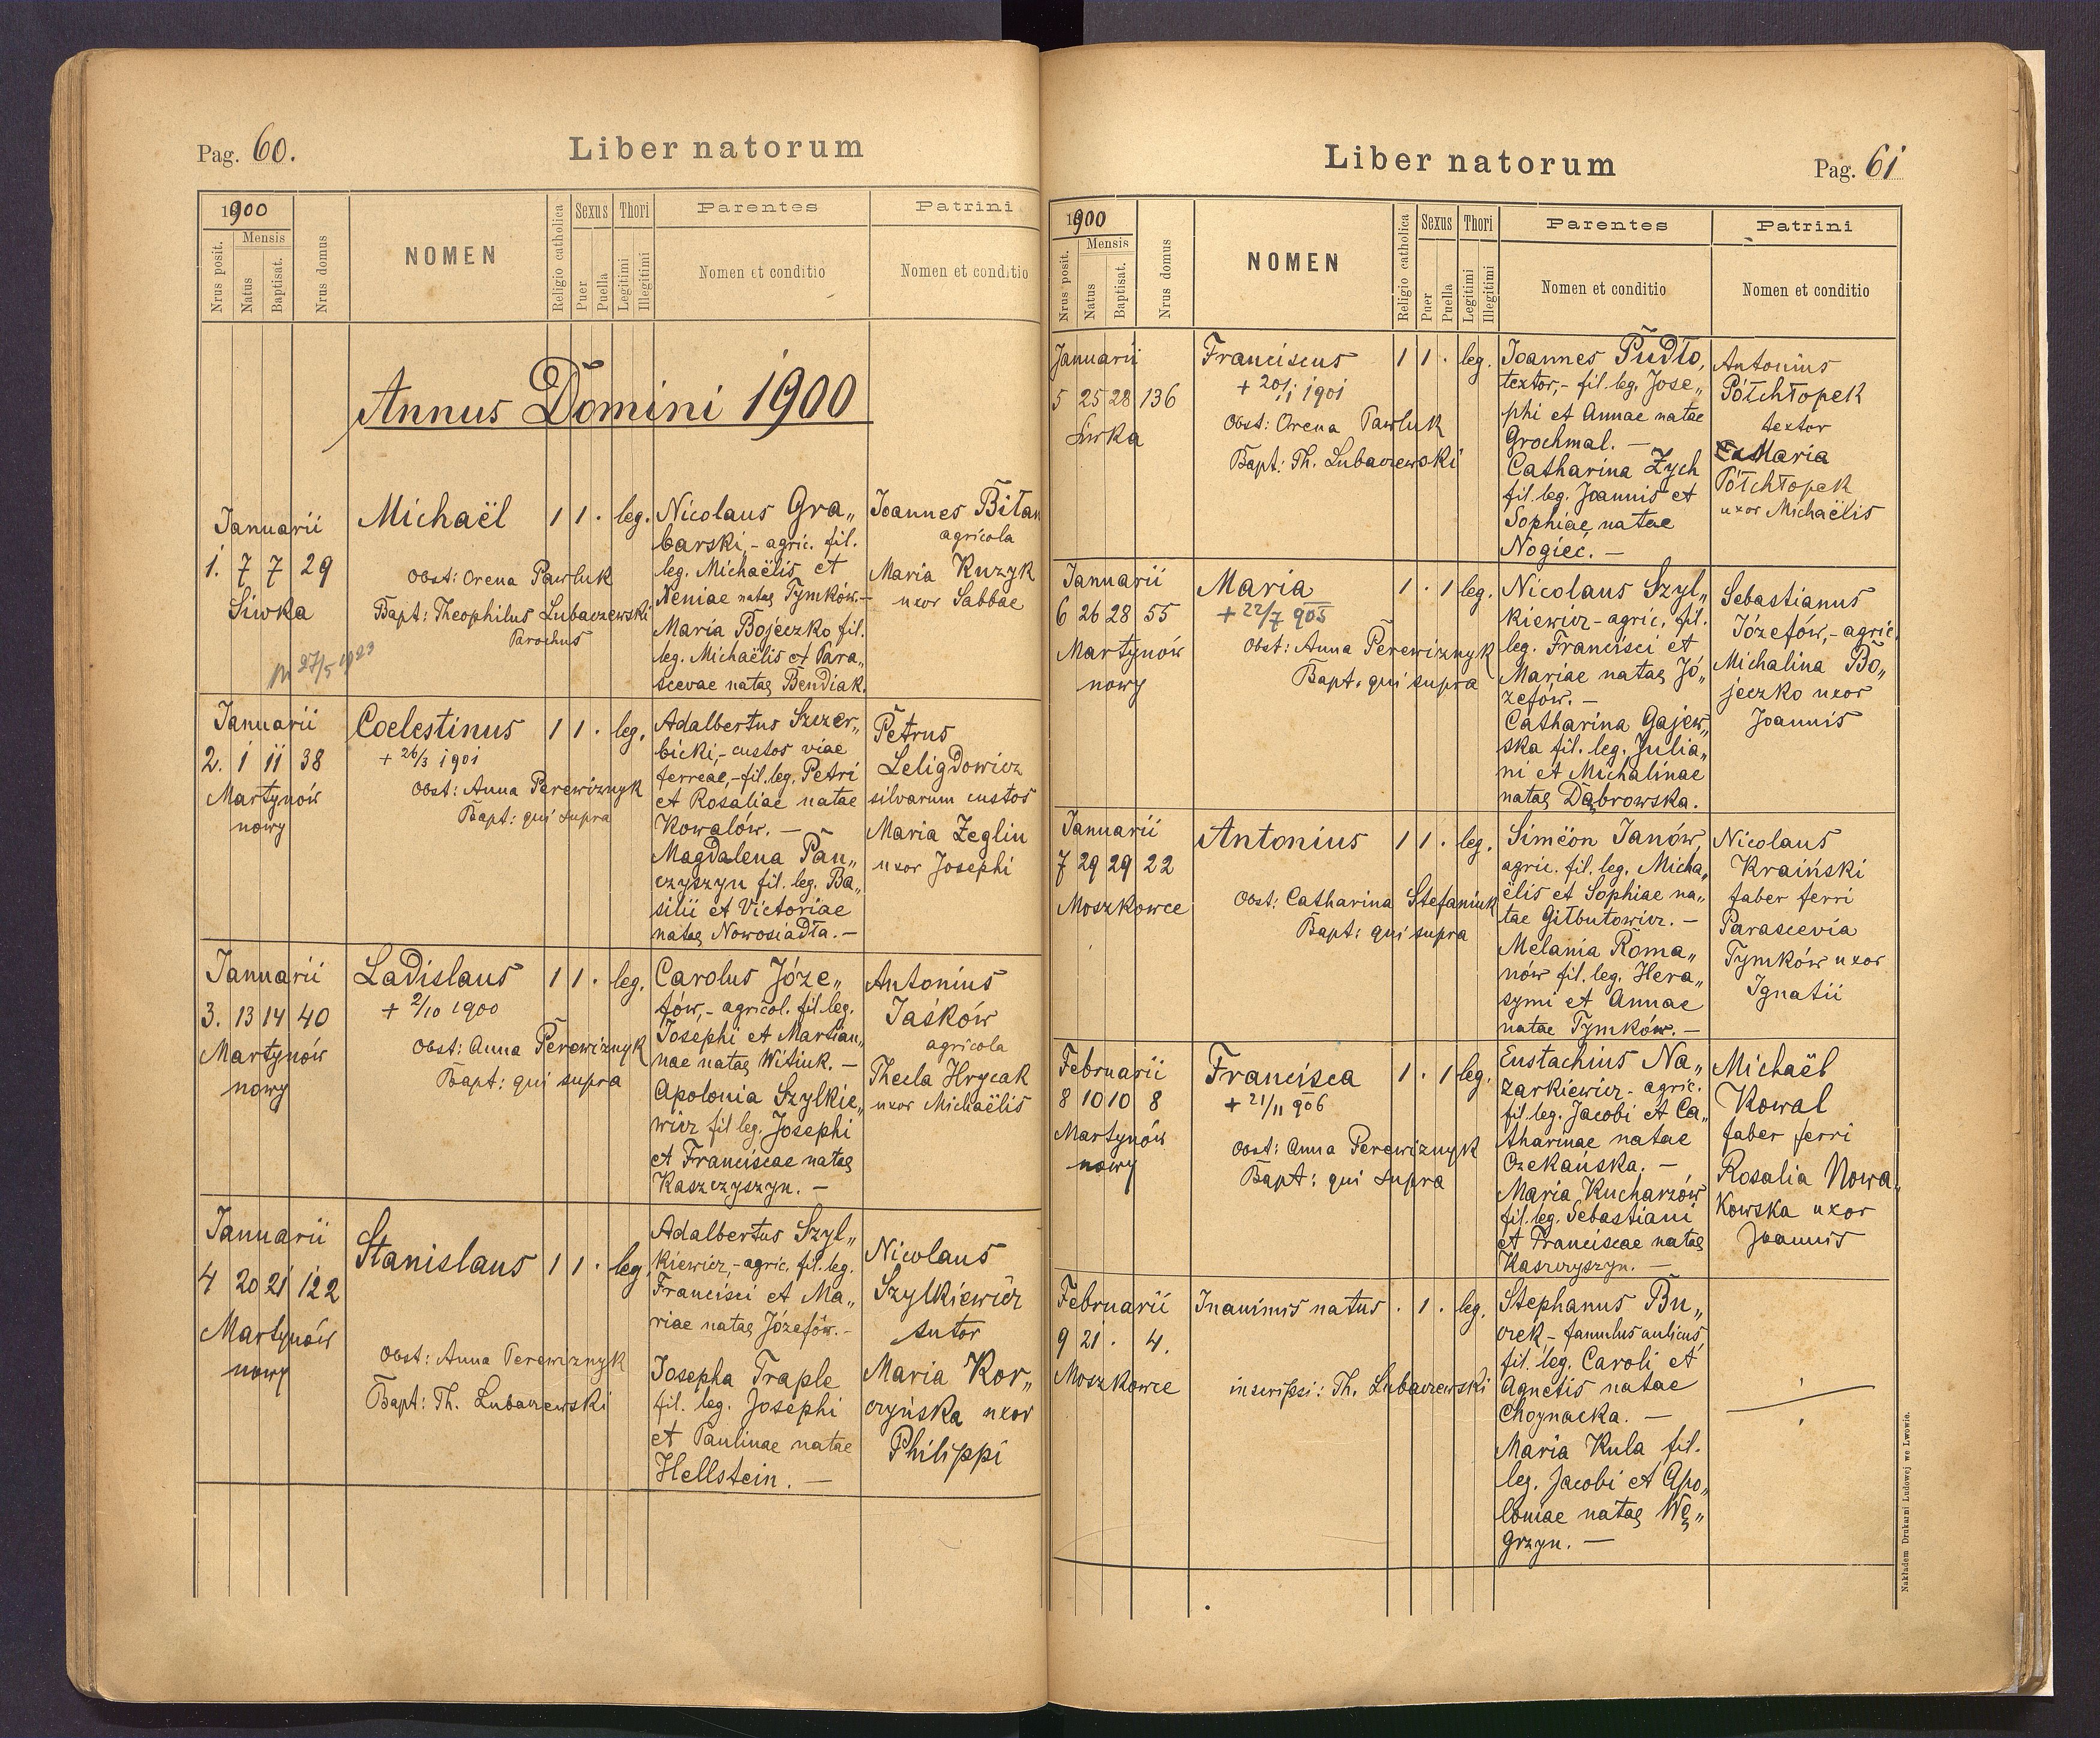 Pag. 60.
Liber natorum
1900
Nrus posit.
Mensis
Natus
Baptisat.
Nrus domus
NOMEN
Religio catholica
Sexus
Puer
Puella
Thori
Legitimi
Illegitimi
Parentes
Nomen et conditio
Patrini
Nomen et conditio
Annus Domini 1900
Januarii
1. 7 7 29
Siwka
Michaël
Obst: Orena Pawluk
Bapt: Theophilus Lubaczewski
Parochus
27/5 1923
1 1 . leg.
Nicolaus Gra„
barski, - agric. fil.
leg. Michaëlis et
Xeniae natae Tymków. -
Maria Bojeczko fil.
leg. Michaëlis et Para„
scevae natae Bendiak.
Joannes Biłan
agricola
Maria Kuzyk
uxor Sabbae
Januarii
2. 1 11 38
Martynów
nowy
Coelestinus
+ 26/3 1901
Obst: Anna Perewiznyk
Bapt: qui supra
1 1 . leg.
Adalbertus Szczer„
bicki, - custos viae
ferreae, - fil. leg. Petri
et Rosaliae natae
Kowalów. -
Magdalena Pan„
czyszyn fil. leg. Ba„
silii et Victoriae
natae Nowosiadła. -
Petrus
Leligdowicz
silvarum custos
Maria Żeglin
uxor Josephi
Januarii
3. 13 14 40
Martynów
nowy
Ladislaus
+ 2/10 1900
Obst: Anna Perewiznyk
Bapt: qui supra
1 1 . leg.
Carolus Józe„
fów, - agricol. fil. leg.
Josephi et Marian„
nae natae Witiuk. -
Apolonia Szylkie„
wicz fil. leg. Josephi
et Franciscae natae
Kaszczyszyn. -
Antonius
Jaśków
agricola
Thecla Hrycak
uxor Michaëlis
Januarii
4 20 21 122
Martynów
nowy
Stanislaus
Obst: Anna Perewiznyk
Bapt: Th. Lubaczewski
1 1 . leg.
Adalbertus Szyl„
kiewicz, - agric. fil. leg.
Francisci et Ma„
riae natae Józefów. -
Josepha Traple
fil. leg. Josephi
et Paulinae natae
Hellstein. -
Nicolaus
Szylkiewicz
sutor
Maria Kor„
czyńska uxor
Philippi
Liber natorum
Pag. 61
1900
Nrus posit.
Mensis
Natus
Baptisat.
Nrus domus
NOMEN
Religio catholica
Sexus
Puer
Puella
Thori
Legitimi
Illegitimi
Parentes
Nomen et conditio
Patrini
Nomen et conditio
Januarii
5 25 28 136
Siwka
Franciscus
+ 20/1 1901
Obst: Orena Pawluk
Bapt: Th. Lubaczewski
1 1 . leg.
Joannes Pudło,
textor, - fil. leg. Jose„
phi et Annae natae
Grochmal. -
Catharina Zych
fil. leg. Joannis et
Sophiae natae
Nogieć. -
Antonius
Półchłopek
textor
Maria
Półchłopek
uxor Michaëlis
Januarii
6 26 28 55
Martynów
nowy
Maria
+ 22/7 905
Obst: Anna Perewiznyk
Bapt. qui supra
1 . 1 leg.
Nicolaus Szyl„
kiewicz - agric. fil.
leg. Francisci et
Mariae natae Jó„
zefów. -
Catharina Gajew„
ska fil. leg. Julia„
ni et Michalinae
natae Dąbrowska.
Sebastianus
Józefów, - agric.
Michalina Bo„
jeczko uxor
Joannis
Januarii
7 29 29 22
Moszkowce
Antonius
Obst: Catharina Stefaniuk
Bapt: qui supra
1 1 . leg.
Simëon Janów,
agric. fil. leg. Micha„
ëlis et Sophiae na„
tae Giłbutowicz. -
Melania Roma„
nów fil. leg. Hera„
symi et Annae
natae Tymków. -
Nicolaus
Kraiński
faber ferri
Parascevia
Tymków uxor
Ignatii
Februarii
8 10 10 8
Martynów
nowy
Francisca
+ 21/11 906
Obst: Anna Perewiznyk
Bapt: qui supra
1 . 1 leg.
Eustachius Na„
zarkiewicz - agric.
fil. leg. Jacobi et Ca„
tharinae natae
Czekańska. -
Maria Kucharzów
fil. leg. Sebastiani
et Franciscae natae
Kaszczyszyn. -
Michaël
Kowal
faber ferri
Rosalia Nowa„
kowska uxor
Joannis
Februarii
9 21 . 4.
Moszkowce
Inanimis natus
inscripsi: Th. Lubaczewski
. 1 . leg.
Stephanus Bu„
czek - famulus aulicus
fil. leg. Caroli et
Agnetis natae
Choynacka. -
Maria Kula fil.
leg. Jacobi et Apo„
loniae natae Wę„
grzyn. -
Nakładem Drukarni Ludowej we Lwowie.